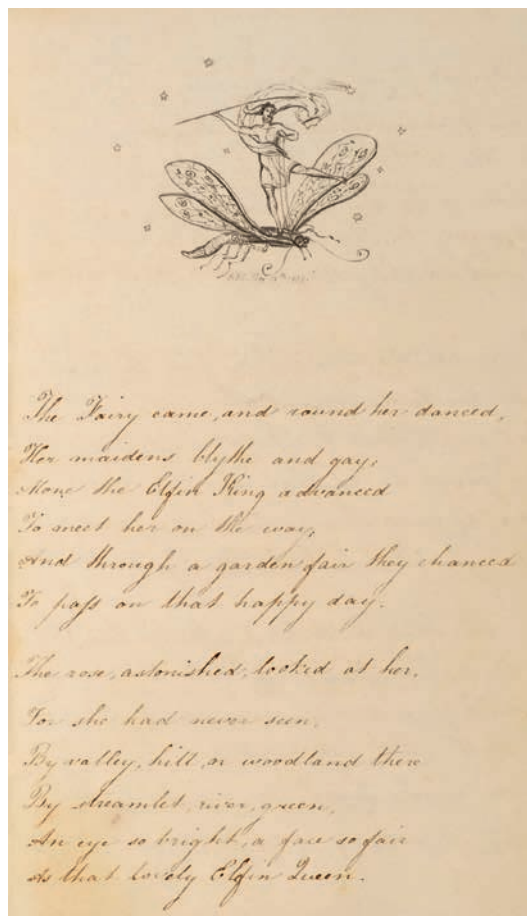 The Fairy came, and round her danced,
Her maidens blythe and gay;
Alone the Elfin King advanced
To meet her on the way,
And through a garden fair they chanced
To pass on that happy day.
The rose, astonished, looked at her,
For she had never seen,
By valley, hill, or woodland there
By streamlet, river, green,
An eye so bright, a face so fair
As that lovely Elfin Queen.